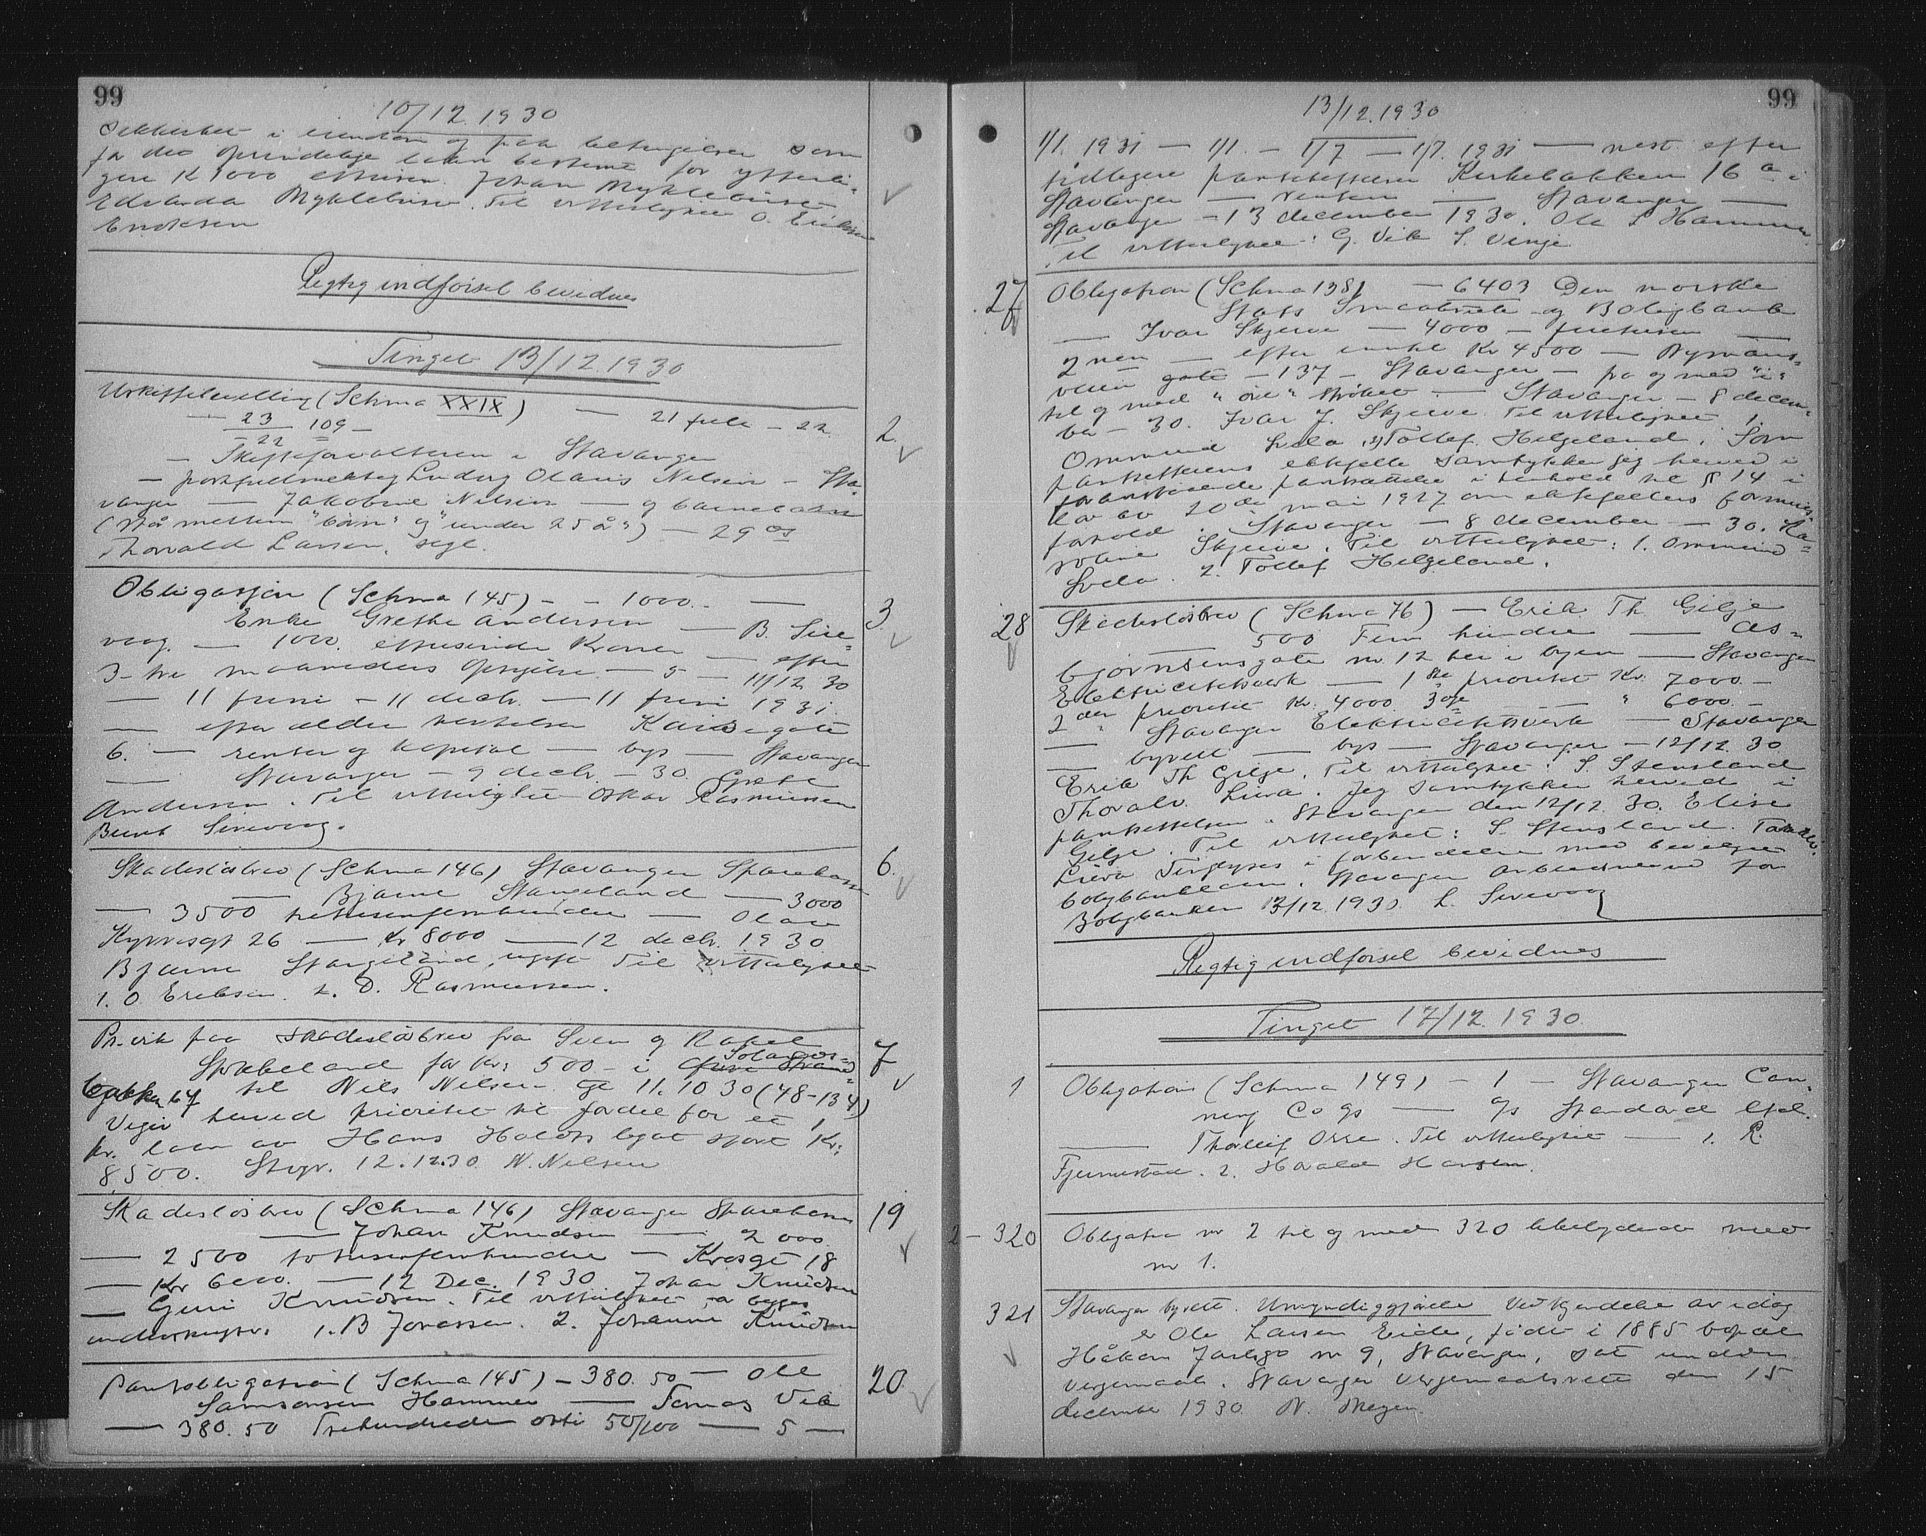 99
10/12 1930
sikkerhet i eiendom og paa betingelser som
for det oprindelige laan bestemt for ytterli-
gere K 1000 Johan Myklebust
Edvarda Myklebust. Til vitterlighet O. Eriksen
Eriksen
Rigtig indførsel bevidnes
Tinget 13/12 1930
Uskifteattest (Schma XXIX) — 21 juli - 22
— 23 109 —
22
— Skifteforvalteren i Stavanger
— postfuldmektig Ludvig Olaus Nilsen — Sta-
vanger — Jakobine Nilsen — og barnebarn
(står mellem "børn" og "under 25 år") — 29 os
Thorvald Larsen. segl.
2
Obligasjon (Schma 145) — — 1000. —
Enke Grethe Andersen — B. Sire-
vaag. — 1000. ettusinde Kroner — efter
3- tre maaneders opsigelse — 5 — 11/12 30
— 11 juni — 11 decbr. — 11 juni 1931.
— efter alder heftelser Karis gate
6. — renter og kapital — bys — Stavanger
— Stavanger — 9 decbr. — 30 Grete
Andersen. Til vitterlighet Oskar Rasmussen
Bernt Sirevaag.
3
Skadesløsbrev (Schma 146) Stavanger Sparekasse
— Bjarne Stangeland — 3000
— 3500 tretusenfemhundre — Olav
Kyrresgt 26 — kr 8000 — 12 decbr. 1930
Bjarne Stangeland, ugift Til vitterlighet
1. O. Eriksen. 2. D. Rasmussen.
6.
Pr. vik paa skadesløsbrev fra Sven og Rakel
Spødeland for kr: 500 - i Øvre Strand- Solands-
bakke 67 til Nils Nilsen gt 11.10 30 (48-134)
Viger herved prioritet til fordel for et 1
pr. laan av Hans Holdts legat stort Kr:
8500. Stvgr. 12.12.30 N. Nilsen
7
Skadesløsbrev (Schma 146) Stavanger Sparekasse
— Johan Knudsen — 2000
— 2500 totusenfemhundre — Kresgt 18
— Kr 6000. — 12 Dec. 1930 Johan Knudsen
— Guri Knudsen. Til vitterlighet a begges
underskrifter: 1. B Jonassen. 2. Johanne Knudsen
19
Pantobligasjon (Schma 145) — 380.50 — Ole
Samsonsen Hammer — Tomas Vik
— 380.50 Trehundrede otti 50/100 — 5 —
20
99
13/12 1930
1/1. 1931 — 1/1. — 1/7 — 1/7. 1931 — nest efter
tidligere pantheftelser Kirkebakken 16 a i
Stavanger — renter — Stavanger —
Stavanger — 13 december 1930. Ole S Hammer
Til vitterlighet: G. Vik S. Vinje
27
Obligation (Schma 198) — 6403 Den norske
Stats Smaabruk- og Boligbank
— Ivar Skjeie — 4000 — firetusen —
2nen — efter inntil Kr 4500 — Nymans-
veien gate — 137 — Stavanger — fra og med "i"
til og med "øie" strøket — Stavanger — 8 decem-
ber — 30. Ivar J. Skjeie Til vitterlighet 1
Ommund Lvela 2) Tollef Helgeland. Som
pantsetterens ektefelle samtykker jeg herved i
foranstaaende pantsættelse i henhold til § 14 i
lov av 20de mai 1927 om ektefellers formues-
forhold. Stavanger — 8 december — 30. Ka-
roline Skjeie. Til vitterlighet: 1. Ommund
Lvela. 2. Tollef Helgeland.
28
Skadesløsbrev (Schma 76) — Erik Th Gilje
— 500 Fem hundre — As-
bjørnsensgate nr. 12 her i byen — Stavanger
Elektricitetsverk — 1ste prioritet Kr. 7000 —
2den prioritet Kr. 4000 3dje — " 6000 —
— " Stavanger Elektricitetsverk — Stavanger
— byrett — bys — Stavanger — 12/12. 30
Erik Th Gilje. Til vitterlighet: S. Stensland
Thoralv Liera. Jeg samtykker herved i
pantsettelsen. Stavanger den 12/12. 30. Elise
Gilje. Til vitterlighet: S. Stensland. Thoralv.
Liera Tinglyses i forbindelse med bevilgn
boligbanklaan. Stavanger arbeidernævnd for
Boligbanken 13/12 1930. L. Sirevaag
Rigtig indførsel bevidnes
Tinget 17/12. 1930
1
Obligation (Schma 149) — 1 — Stavanger Can-
ning Co As — A/s Standard Efd.
— Thorleif Orre. Til vitterlighet — 1. R.
Fjermestad. 2. Harald Hansen.
2-320
Obligation nr 2 til og med 320 likelydende med
nr 1.
321
Stavanger byrett. Umyndiggjørelse Ved kjendelse av idag
er Ole Larsen Eide, født i 1885 bopæl
Håkon Jarlsgt nr 9, Stavanger, sat under
vergemaal. Stavanger vergemaalsrett den 15
december 1930 N. Meyer.